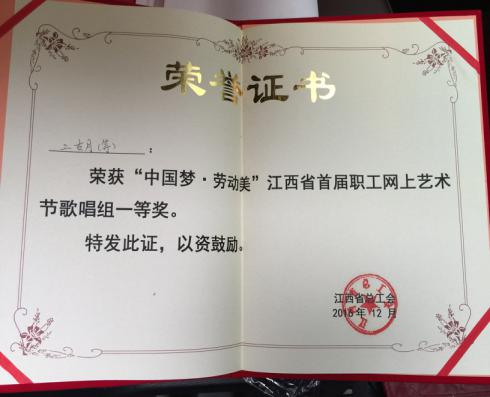 荣誉证书
二古月(等)：
荣获“中国梦·劳动美”江西省首届职工网上艺术
节歌唱组一等奖。
特发此证，以资鼓励。
江西省总工会
年 12 月